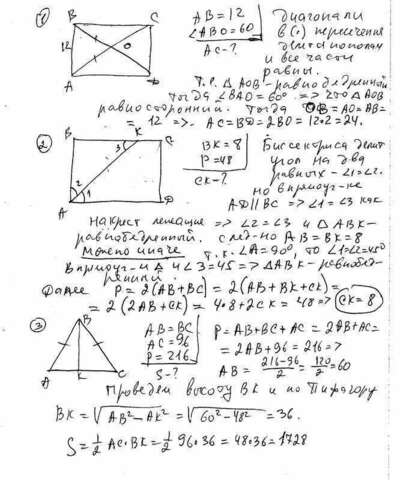 ① B C AB=12 Диагонали
∠ABO=60 в (.) пересечения
12 O AC-? делятся пополам
и все части
A D равны.
Т.к. △AOB - равнобедренный
тогда ∠BAO=60° => это △AOB
равносторонний. Тогда OB=AO=AB=
=12 => AC=BD=2BO=12·2=24.
② B K C BK=8 Биссектриса делит
3 P=48 угол на два
CK-? равных - ∠1=∠2.
2 но в прямоуг-ке
A 1 D AD||BC => ∠1=∠3 как
накрест лежащие => ∠2=∠3 и △ABK -
равнобедренный. след-но AB=BK=8
можно иначе т.к. ∠A=90°, то ∠1=∠2=45°
В прямоуг-м △ и ∠3=45 => △ABK - равнобед-
ренный.
Далее P=2(AB+BC)=2(AB+BK+CK)=
=2(2AB+CK)=4·8+2CK=48 => CK=8
③ B AB=BC P=AB+BC+AC=2AB+AC=
AC=96 =2AB+96=216 =>
P=216 AB=216-96/2=120/2=60
A K C S-?
Проведем высоту BK и по Пифагору
BK=√AB²-AK²=√60²-48²=36.
S=1/2 AC·BK=1/2 96·36=48·36=1728